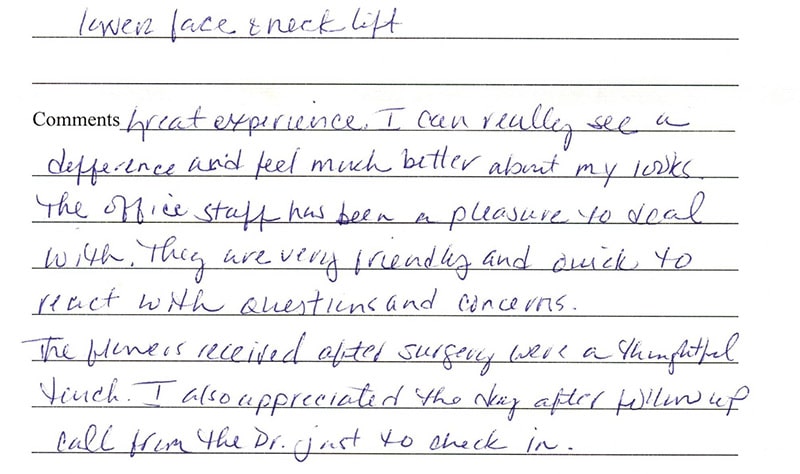 lower face & neck lift
Comments Great experience. I can really see a
defference and feel much better about my looks.
The office staff has been a pleasure to deal
with. They are very friendly and quick to
react with questions and concerns.
The flowers received after surgery were a thoughtful
touch. I also appreciated the day after follow up
call from the Dr. just to check in.